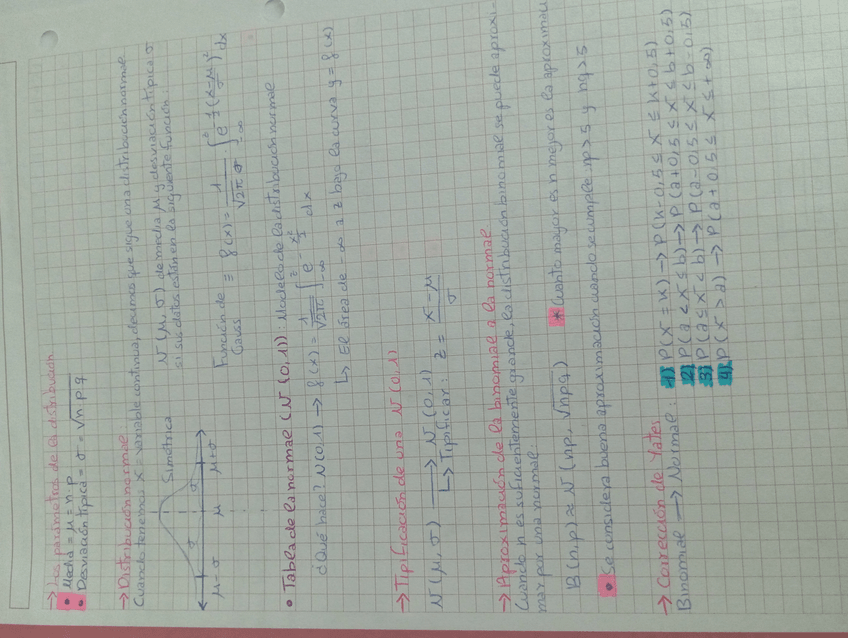 → Los parámetros de la distribución
• Media = μ = n·p
• Desviación típica = σ = √npq
→ Distribución normal:
Cuando tenemos X = variable continua, decimos que sigue una distribución normal
N(μ, σ) de media μ y desviación típica σ
si sus datos están en la siguiente función
Simétrica
σ σ
μ-σ μ μ+σ
Función de Gauss ≡ f(x) = 1/(√2π σ) ∫_{-∞}^{z} e^{-1/2 ((x-μ)/σ)^2} dx
• Tabla de la normal (N(0,1)): Modelo de la distribución normal
¿Qué hace? N(0,1) → f(x) = 1/√2π ∫_{-∞}^{z} e^{-x²/2} dx
↳ El área de -∞ a z bajo la curva y = f(x)
→ Tipificación de una N(0,1)
N(μ, σ) ⟶ N(0,1)
↳ Tipificar: z = (x-μ)/σ
→ Aproximación de la binomial a la normal
Cuando n es suficientemente grande, la distribución binomial se puede aproxi-
mar por una normal.
B(n,p) ≈ N(np, √npq) * Cuanto mayor es n mejor es la aproximac
• Se considera buena aproximación cuando se cumple: np>5 y nq>5
→ Corrección de Yates
Binomial → Normal: 1) P(X=k) → P(k-0,5 ≤ X' ≤ k+0,5)
2) P(a<X≤b) → P(a+0,5 ≤ X' ≤ b+0,5)
3) P(a≤X<b) → P(a-0,5 ≤ X' ≤ b-0,5)
4) P(X>a) → P(a+0,5 ≤ X' ≤ +∞)